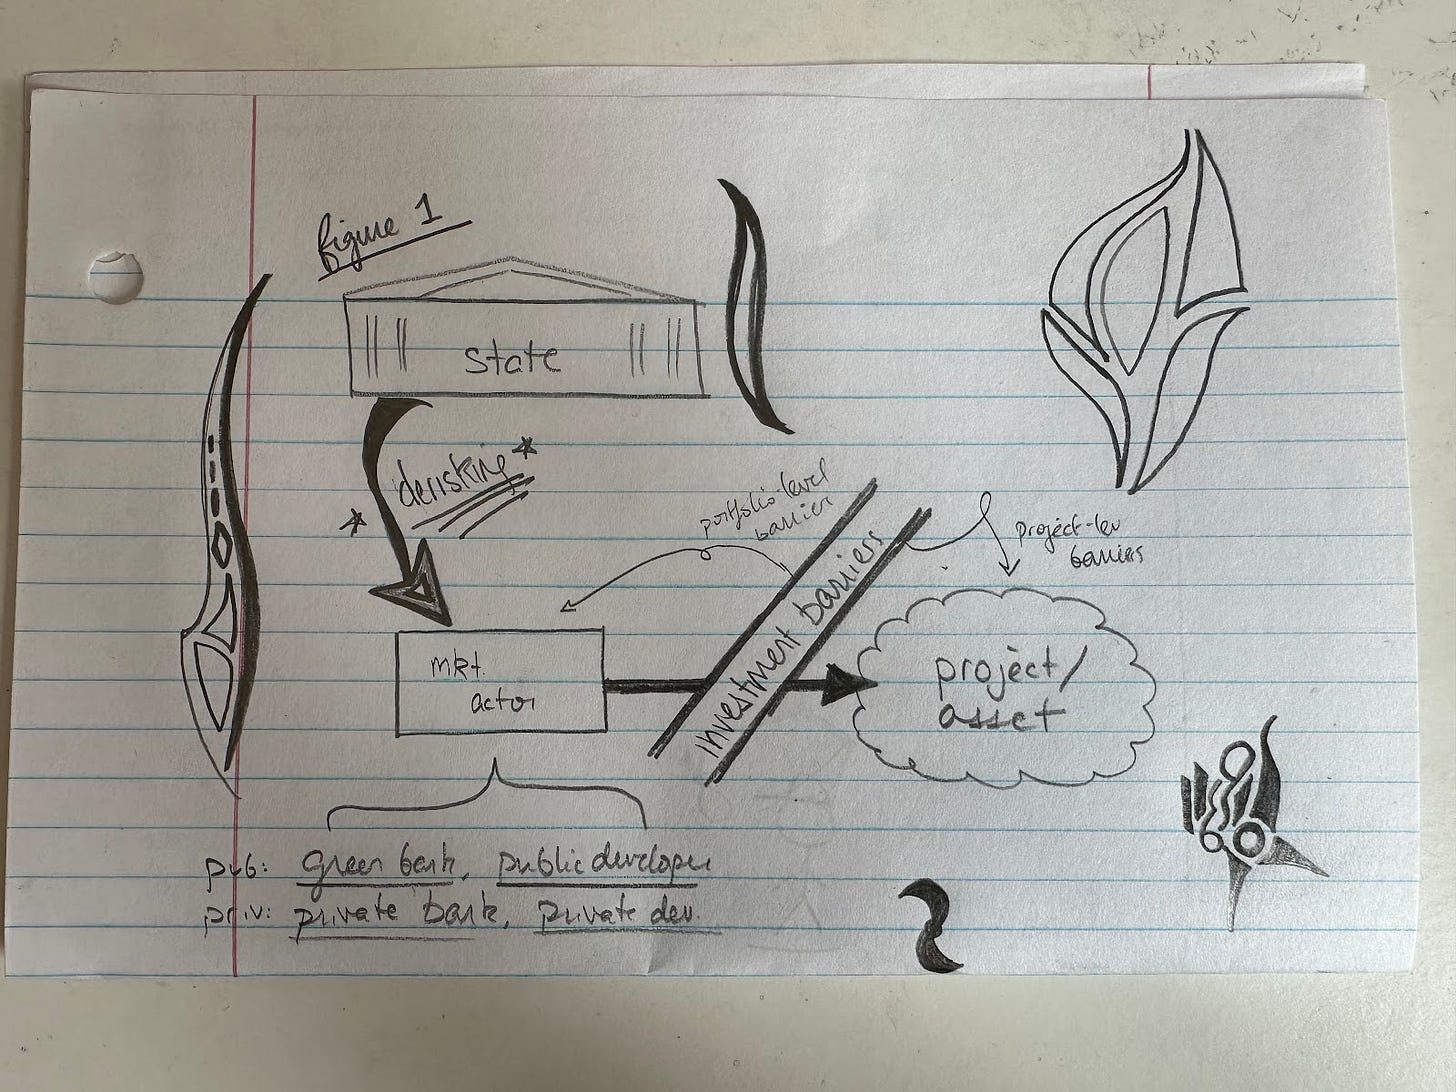 figure 1
state
derisking
portfolio-level
barrier
project-lev
barriers
investment barriers
mkt.
actor
project/
asset
pub: green bank, public developer
priv: private bank, private dev.